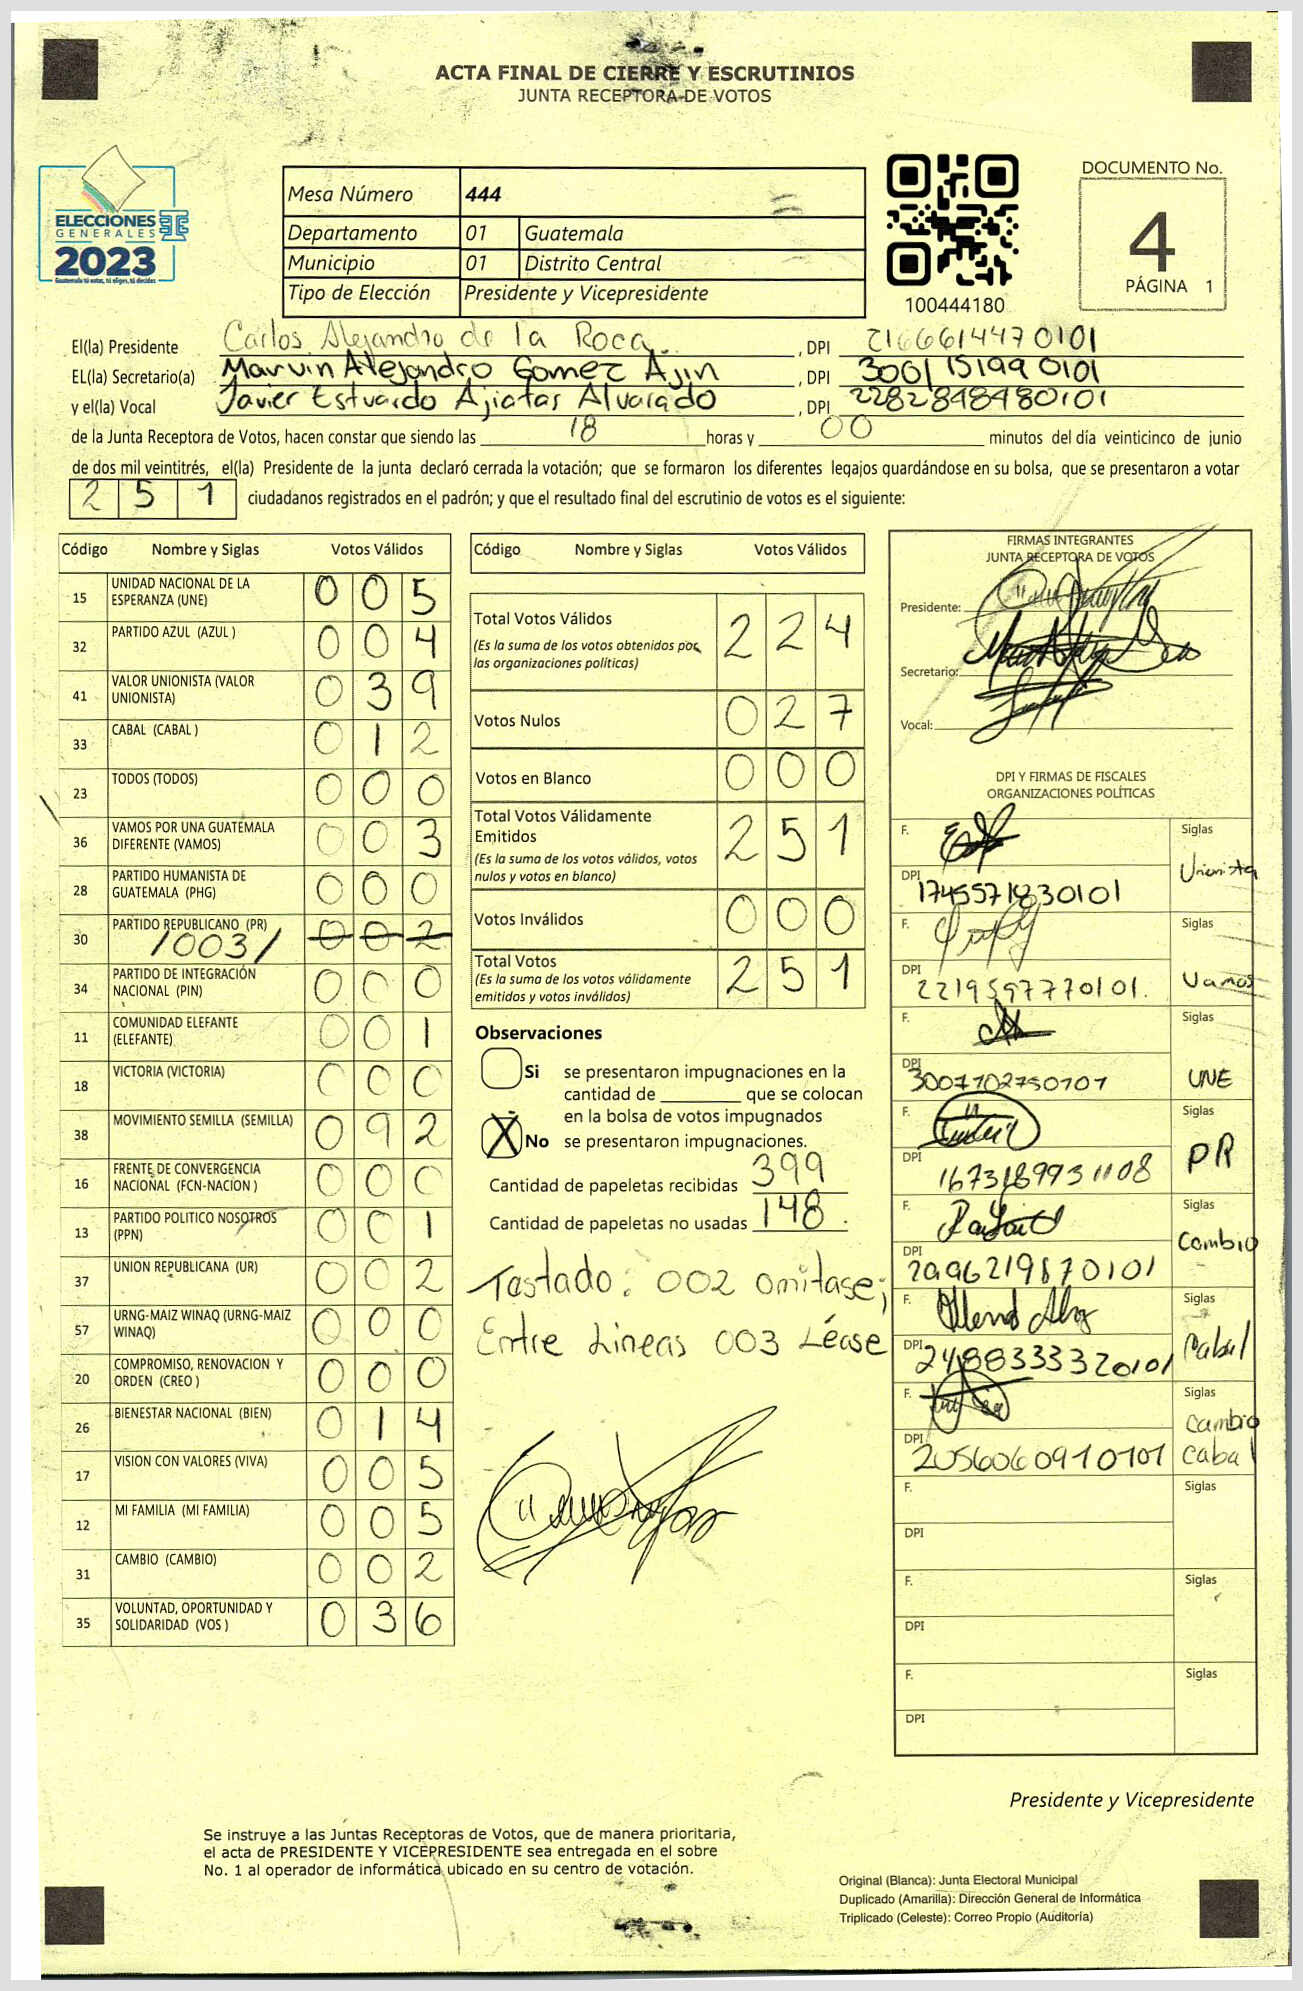 ACTA FINAL DE CIERRE Y ESCRUTINIOS
JUNTA RECEPTORA DE VOTOS
ELECCIONES
GENERALES
2023
Guatemala tú votas, tú eliges, tú decides
Mesa Número 444
Departamento 01 Guatemala
Municipio 01 Distrito Central
Tipo de Elección Presidente y Vicepresidente
100444180
DOCUMENTO No.
4
PÁGINA 1
El(la) Presidente Carlos Alejandro de la Roca , DPI 2166614470101
EL(la) Secretario(a) Marvin Alejandro Gomez Ajin , DPI 3001151990101
y el(la) Vocal Javier Estuardo Ajiatas Alvarado , DPI 2282848480101
de la Junta Receptora de Votos, hacen constar que siendo las 18 horas y 00 minutos del día veinticinco de junio
de dos mil veintitrés, el(la) Presidente de la junta declaró cerrada la votación; que se formaron los diferentes legajos guardándose en su bolsa, que se presentaron a votar
251 ciudadanos registrados en el padrón; y que el resultado final del escrutinio de votos es el siguiente:
Código Nombre y Siglas Votos Válidos
15 UNIDAD NACIONAL DE LA ESPERANZA (UNE) 005
32 PARTIDO AZUL (AZUL ) 004
41 VALOR UNIONISTA (VALOR UNIONISTA) 039
33 CABAL (CABAL ) 012
23 TODOS (TODOS) 000
36 VAMOS POR UNA GUATEMALA DIFERENTE (VAMOS) 003
28 PARTIDO HUMANISTA DE GUATEMALA (PHG) 000
30 PARTIDO REPUBLICANO (PR) /003/ 002
34 PARTIDO DE INTEGRACIÓN NACIONAL (PIN) 000
11 COMUNIDAD ELEFANTE (ELEFANTE) 001
18 VICTORIA (VICTORIA) 000
38 MOVIMIENTO SEMILLA (SEMILLA) 092
16 FRENTE DE CONVERGENCIA NACIONAL (FCN-NACION ) 000
13 PARTIDO POLITICO NOSOTROS (PPN) 001
37 UNION REPUBLICANA (UR) 002
57 URNG-MAIZ WINAQ (URNG-MAIZ WINAQ) 000
20 COMPROMISO, RENOVACION Y ORDEN (CREO ) 000
26 BIENESTAR NACIONAL (BIEN) 014
17 VISION CON VALORES (VIVA) 005
12 MI FAMILIA (MI FAMILIA) 005
31 CAMBIO (CAMBIO) 002
35 VOLUNTAD, OPORTUNIDAD Y SOLIDARIDAD (VOS ) 036
Código Nombre y Siglas Votos Válidos
Total Votos Válidos 224
(Es la suma de los votos obtenidos por
las organizaciones políticas)
Votos Nulos 027
Votos en Blanco 000
Total Votos Válidamente
Emitidos 251
(Es la suma de los votos válidos, votos
nulos y votos en blanco)
Votos Inválidos 000
Total Votos 251
(Es la suma de los votos válidamente
emitidos y votos inválidos)
Observaciones
Si se presentaron impugnaciones en la
cantidad de ________ que se colocan
en la bolsa de votos impugnados
X No se presentaron impugnaciones.
Cantidad de papeletas recibidas 399
Cantidad de papeletas no usadas 148.
Testado: 002 omitase;
Entre Lineas 003 Léase
FIRMAS INTEGRANTES
JUNTA RECEPTORA DE VOTOS
Presidente:
Secretario:
Vocal:
DPI Y FIRMAS DE FISCALES
ORGANIZACIONES POLÍTICAS
F. Siglas Unionista
DPI 1745571830101
F. Siglas Vamos
DPI 2219597770101.
F. Siglas UNE
DPI 3007702750101
F. Siglas PR
DPI 1673189931108
F. Siglas Cambio
DPI 2996219870101
F. Siglas Cabal
DPI 2488333320101
F. Siglas cambio
DPI 2056060910101 cabal
F. Siglas
DPI
F. Siglas
DPI
F. Siglas
DPI
Presidente y Vicepresidente
Se instruye a las Juntas Receptoras de Votos, que de manera prioritaria,
el acta de PRESIDENTE Y VICEPRESIDENTE sea entregada en el sobre
No. 1 al operador de informática ubicado en su centro de votación.
Original (Blanca): Junta Electoral Municipal
Duplicado (Amarilla): Dirección General de Informática
Triplicado (Celeste): Correo Propio (Auditoría)